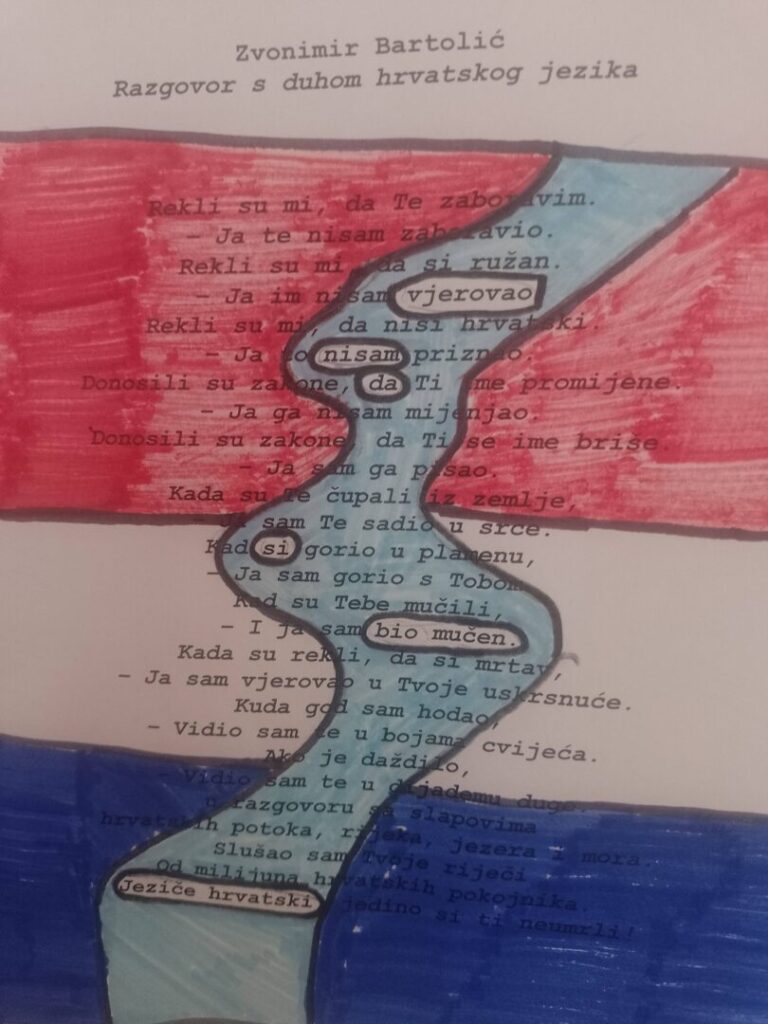 Zvonimir Bartolić
Razgovor s duhom hrvatskog jezika
Rekli su mi, da Te zaboravim.
- Ja te nisam zaboravio.
Rekli su mi, da si ružan.
- Ja im nisam vjerovao
Rekli su mi, da nisi hrvatski.
- Ja to nisam priznao.
Donosili su zakone, da Ti ime promijene.
- Ja ga nisam mijenjao.
Donosili su zakone, da Ti se ime briše.
- Ja sam ga pisao.
Kada su Te čupali iz zemlje,
- Ja sam Te sadio u srce.
Kad si gorio u plamenu,
- Ja sam gorio s Tobom
Kad su Tebe mučili,
- I ja sam bio mučen.
Kada su rekli, da si mrtav,
- Ja sam vjerovao u Tvoje uskrsnuće.
Kuda god sam hodao,
- Vidio sam te u bojama cvijeća.
Ako je daždilo,
- Vidio sam te u dijademu duge.
u razgovoru sa slapovima
hrvatskih potoka, rijeka, jezera i mora.
Slušao sam Tvoje riječi
Od milijuna hrvatskih pokojnika.
Jeziče hrvatski jedino si ti neumrli!